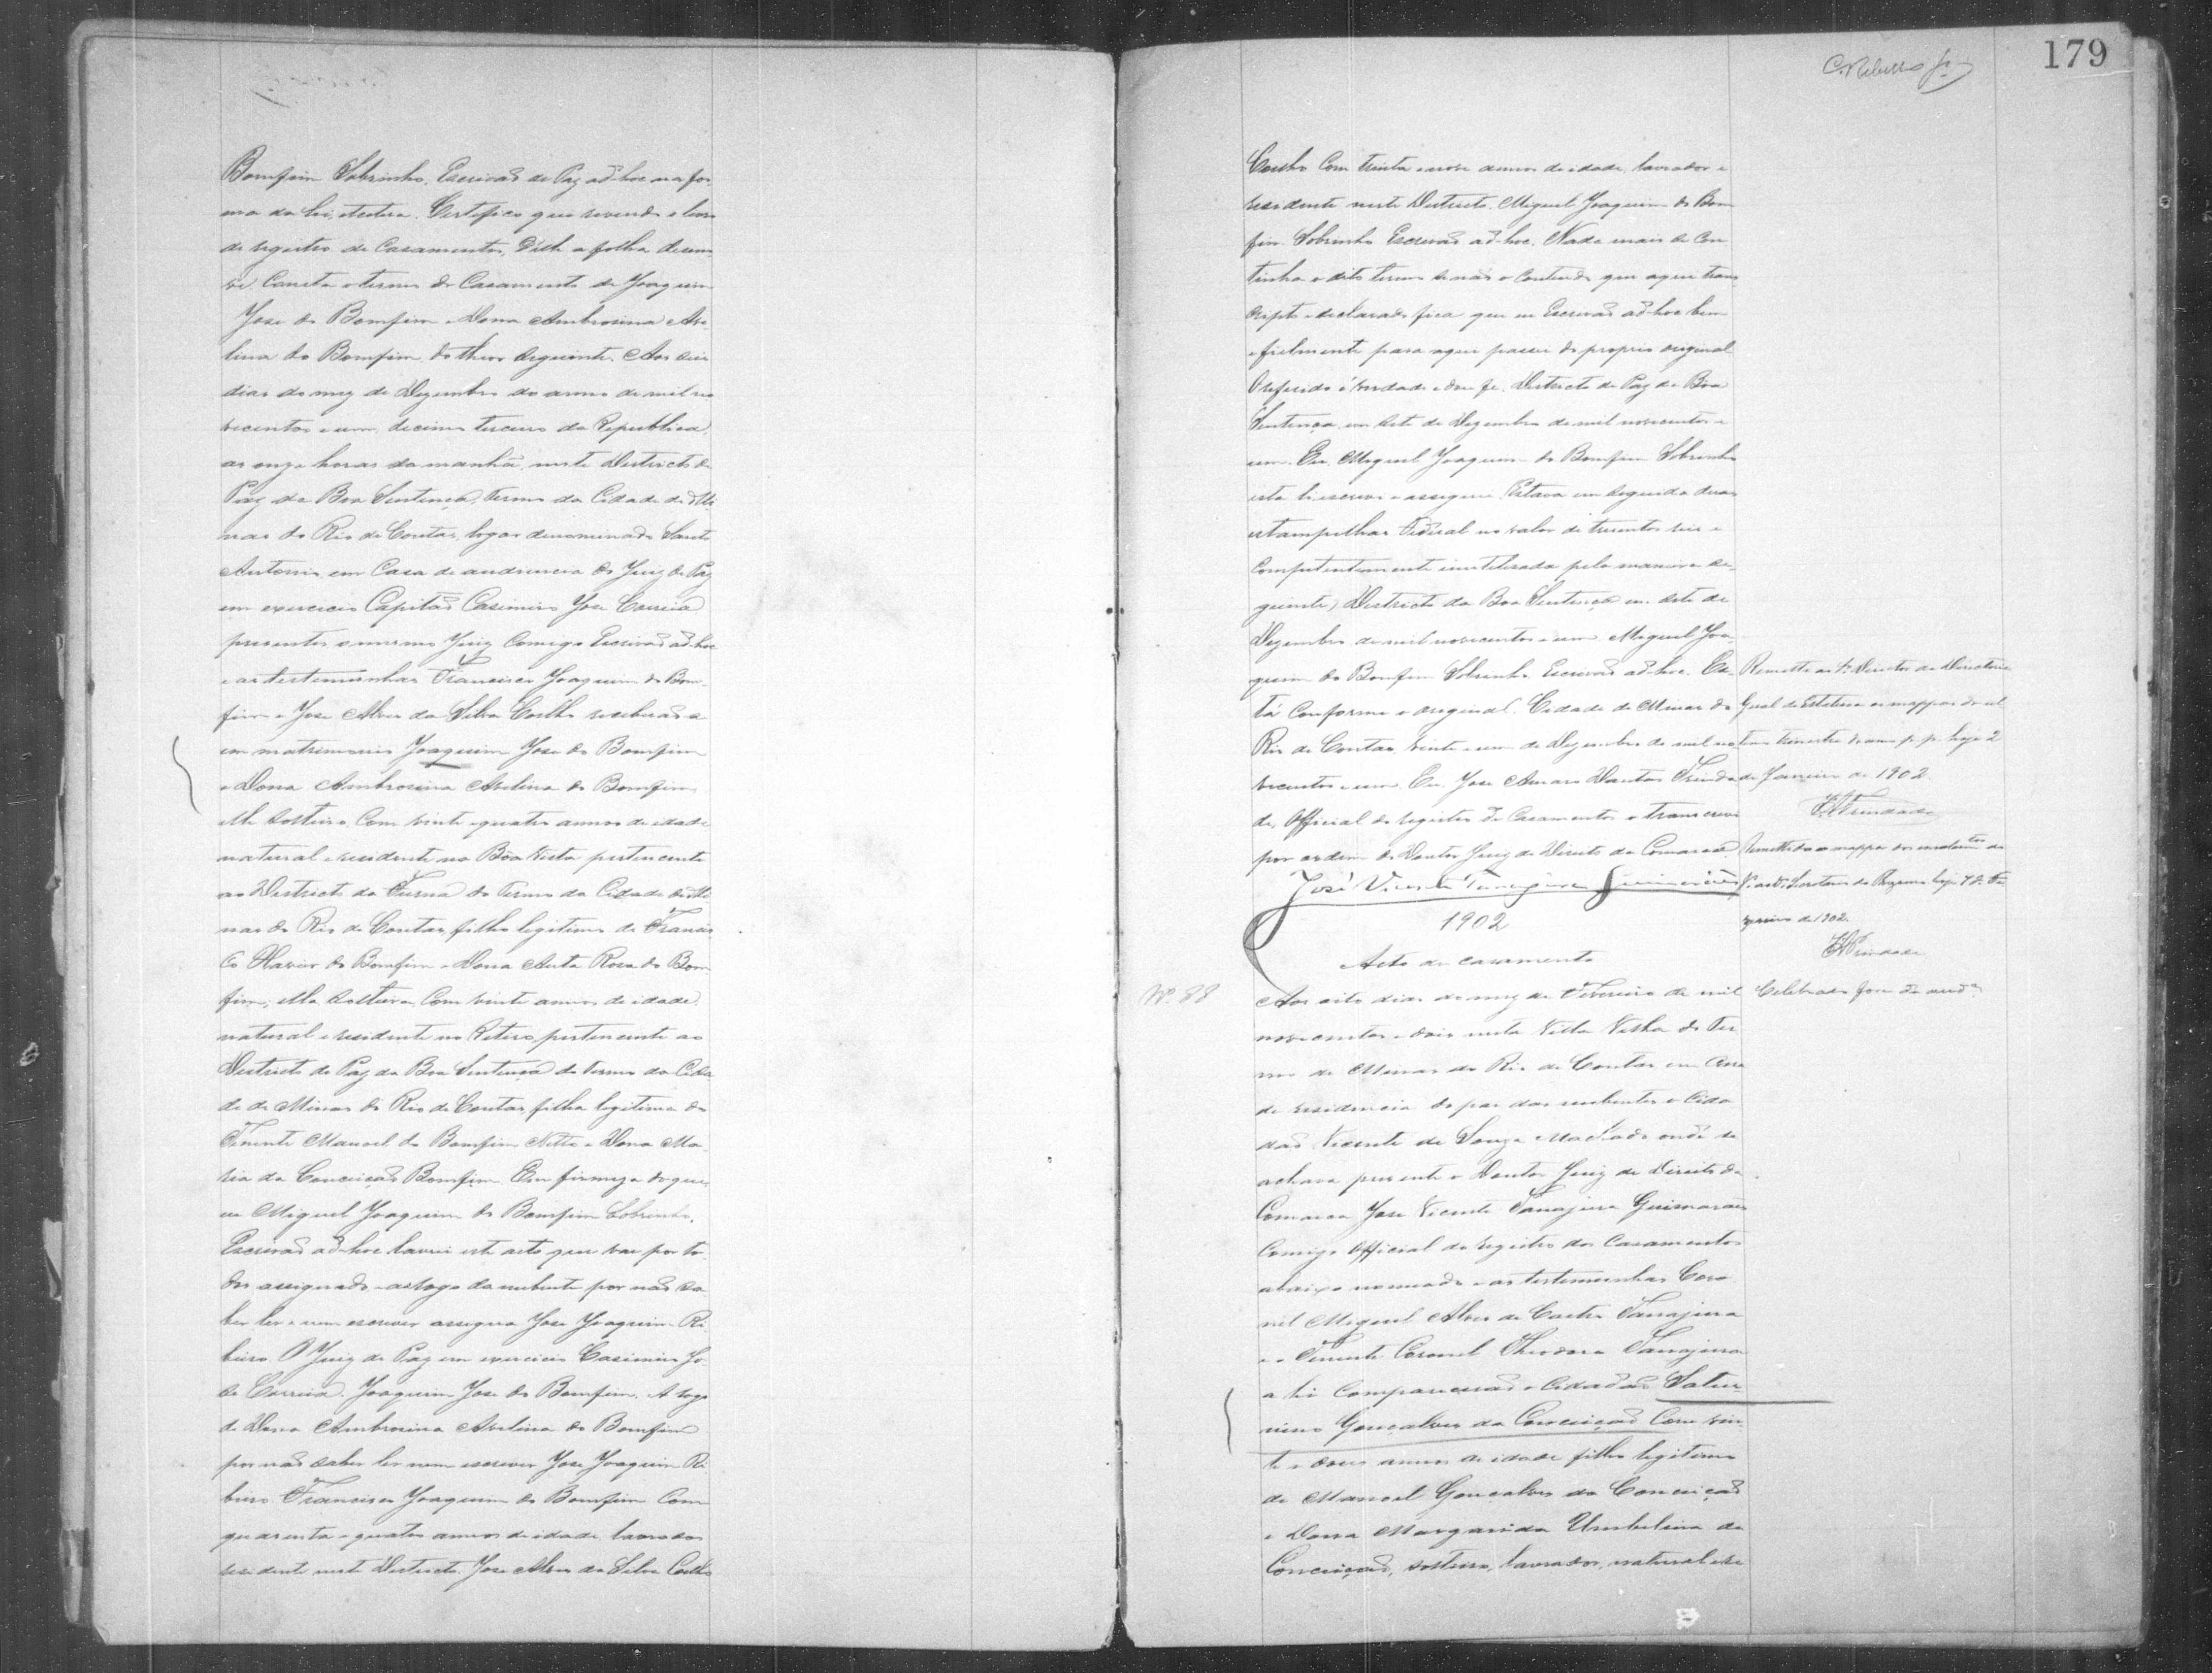 Bomfim Sobrinho, Escrivaõ de Paz ad-hoc na for
ma da lei, etcetera. Certifico que revendo o livro
de registro de Casamentos, d'elle a folha
Consta o termo do Casamento de Joaquim
Jose do Bomfim e Dona Ambrosina Ave
lina do Bomfim, do theor seguinte. Aos seis
dias do mez de Dezembro do anno de mil no
vecentos e um, decimo terceiro da Republica,
as onze horas da manhã, neste Districto de
Paz da Boa Sentença, Termo da Cidade de Mi
nas do Rio de Contas, logar denominado Santo
Antonio em Casa de audiencia do Juiz de Paz
em exercicio Capitaõ Casimiro Jose Correia
presentes o mesmo Juiz Comigo Escrivaõ ad-hoc
e as testemunhas Francisco Joaquim do Bom-
fim e Jose Alves da Silva Coelho receberaõ se
em matrimonio Joaquim Jose do Bomfim
e Dona Ambrosina Avelina do Bomfim
elle solteiro, Com vinte e quatro annos de idade
natural e residente na Bôa Vista pertencente
ao Districto da Furna do Termo da Cidade de Mi
nas do Rio de Contas, filho legitimo de Francis
Co Xavier do Bomfim e Dona Anta Rosa do Bom
fim; ella solteira, Com vinte annos de idade,
natural e residente no Retiro pertencente ao
Districto de Paz da Boa Sentença do termo da Cida
de de Minas do Rio de Contas, filha legitima do
Tenente Manoel do Bomfim Netto e Dona Ma-
ria da Conceiçaõ Bomfim. Em firmeza do que,
eu Miguel Joaquim do Bomfim Sobrinho,
Escrivaõ ad-hoc lavrei este acto que vae por to-
dos assignado e a rogo da nubente por naõ sa-
ber ler e nem escrever assigna Jose Joaquim Ri
beiro. O Juiz de Paz em exercicio Casimiro Jo
se Correia. Joaquim Jose do Bomfim. A rogo
de Dona Ambrosina Avelina do Bomfim
por naõ saber ler nem escrever Jose Joaquim Ri
beiro Francisco Joaquim do Bomfim Com
quarenta e quatro annos de idade lavrador
residente neste Districto. Jose Alves da Silva Coelho
179
Coelho Com trinta e nove annos de idade, lavrador e
residente neste Districto. Miguel Joaquim do Bom
fim Sobrinho Escrivaõ ad-hoc. Nada mais se Con
tinha o dito termo se naõ o Contendo que aqui trans
cripto e declarado fica que eu Escrivaõ ad-hoc bem
e fielmente para aqui passei do proprio original
O referido é verdade e dou fe. Districto de Paz da Bôa
Sentença em sete de Dezembro de mil novecentos e
um. Eu Miguel Joaquim do Bomfim Sobrinho
esta escrevi e assignei. Estava em seguida duas
estampilhas Federal no valor de trezentos reis e
Competentemente inutilizada pela maneira se-
guinte) Districto da Boa Sentença em sete de
Dezembro de mil novecentos e um Miguel Joa-
quim do Bomfim Sobrinho Escrivaõ ad-hoc. Es-
tá Conforme o original. Cidade de Minas do
Rio de Contas, vinte e um de Dezembro de mil no
vecentos e um. Eu, Jose Amaro Dantas Trinda
de, Official do registro de Casamentos o transcrevi
por ordem do Doutor Juiz de Direito da Comarca.
José Vicente Tanajura Guimarães
Remetti ao Director da Directoria
Geral de Estatistica os mappas do ul
timo trimestre do anno p. p. hoje 2
de Janeiro de 1902.
Trindade
hoje 7 de Fe
vereiro de 1902.
Trindade
1902
Acto de casamento
Nº. 88
Aos oito dias do mez de Fevereiro de mil
novecentos e dois nesta Villa Velha do Ter
mo de Minas do Rio de Contas em Casa
de residencia do pae dos nubentes o Cida
daõ Vicente de Souza Machado onde se
achava presente o Doutor Juiz de Direito da
Comarca Jose Vicente Tanajura Guimarães
Comigo Official do registro dos Casamentos
abaixo nomeado e as testemunhas Coro
nel Miguel Alves de Castro Tanajura
e o Tenente Coronel Theodoro Tanajura
a hi Compareceraõ o Cidadaõ Satur-
nino Gonçalves da Conceiçaõ Com vin-
te e dous annos de idade filho legitimo
de Manoel Gonçalves da Conceiçaõ
e Dona Margarida Umbelina da
Conceiçaõ, solteiro, lavrador, natural e re